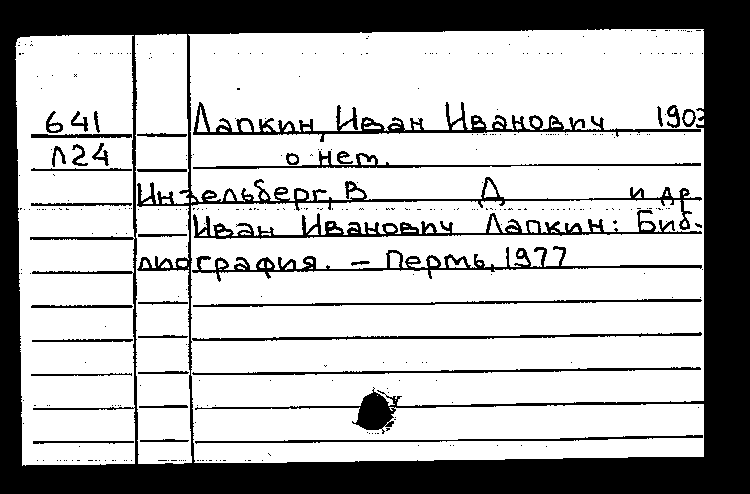 641 Лапкин, Иван Иванович, 1903
Л24 о нет.
Инзельберг, В Д и др.
Иван Иванович Лапкин: Биб-
лиография. – Пермь, 1977